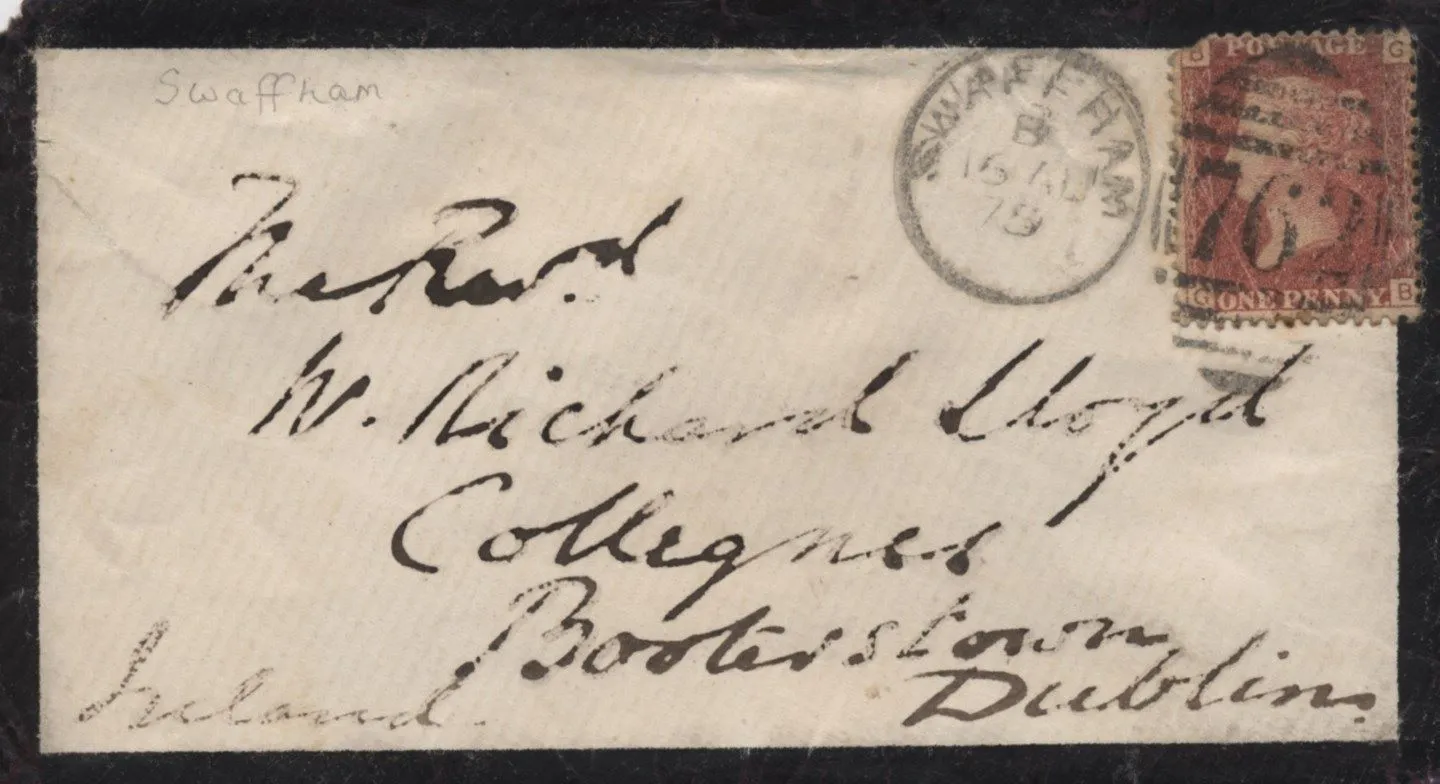 Swaffham
SWAFFHAM
B
16 AU
79
B POSTAGE G
762
G ONE PENNY B
The Revd
W. Richard Lloyd
Booterstown
Dublin.
Ireland.